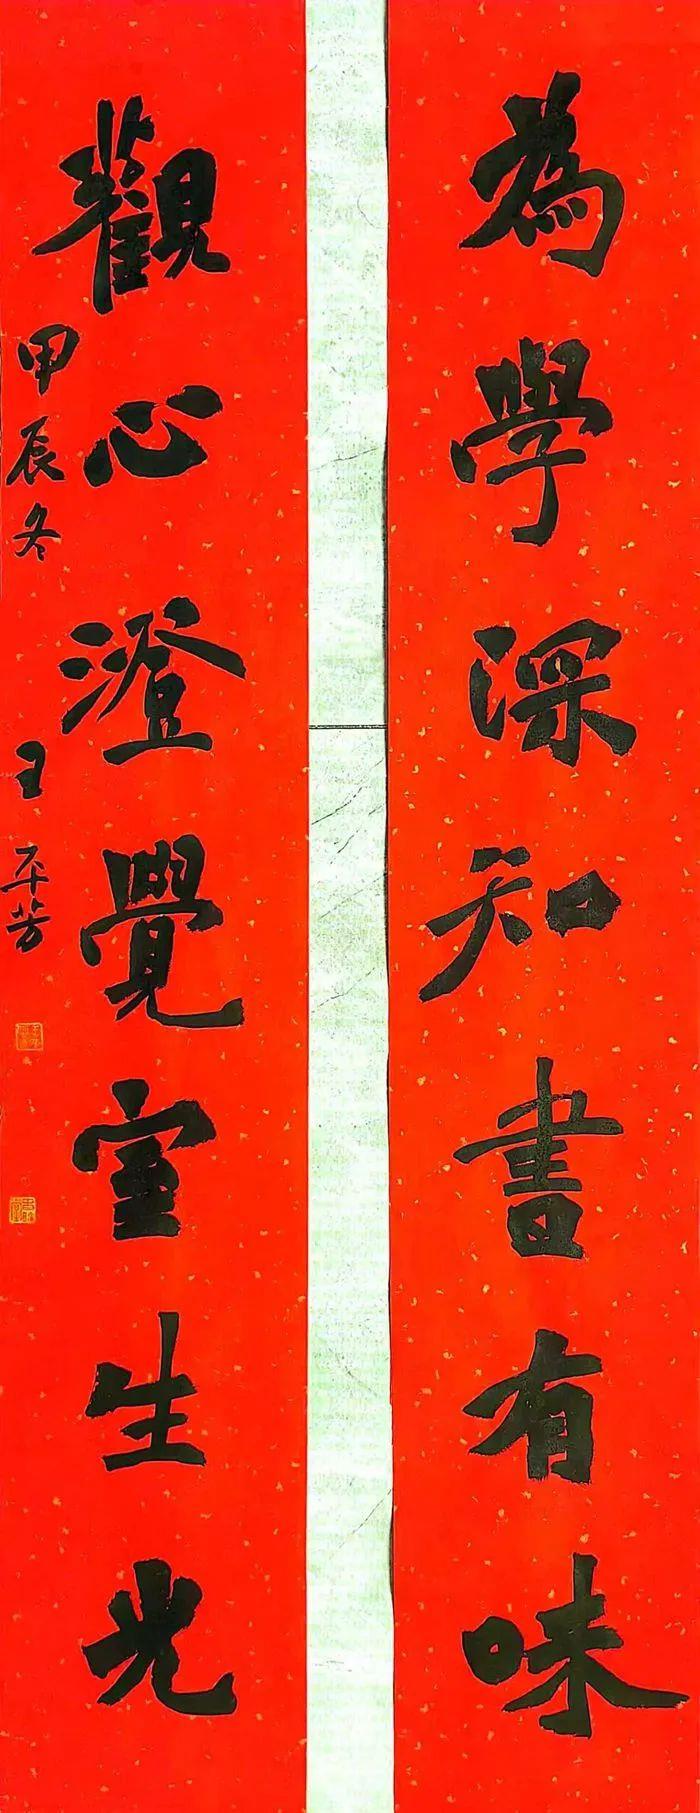 為學深知書有味
觀心澄覺室生光
甲辰冬 王平芳